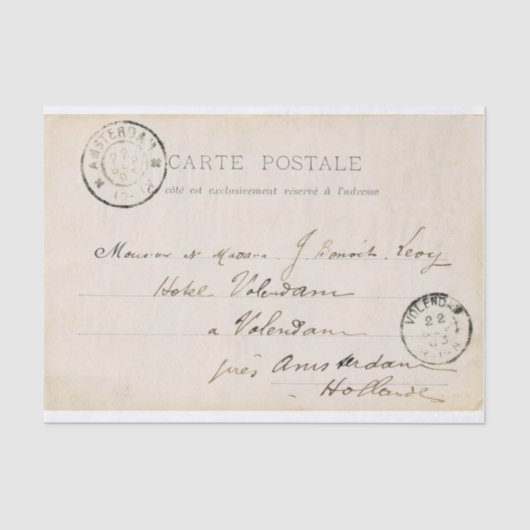 AMSTERDAM
22
CARTE POSTALE
Ce côté est exclusivement réservé à l'adresse
Monsieur et Madame J Benoit-Levy
Hotel Volendam
VOLENDAM
22
a Volendam
près Amsterdam
Hollande